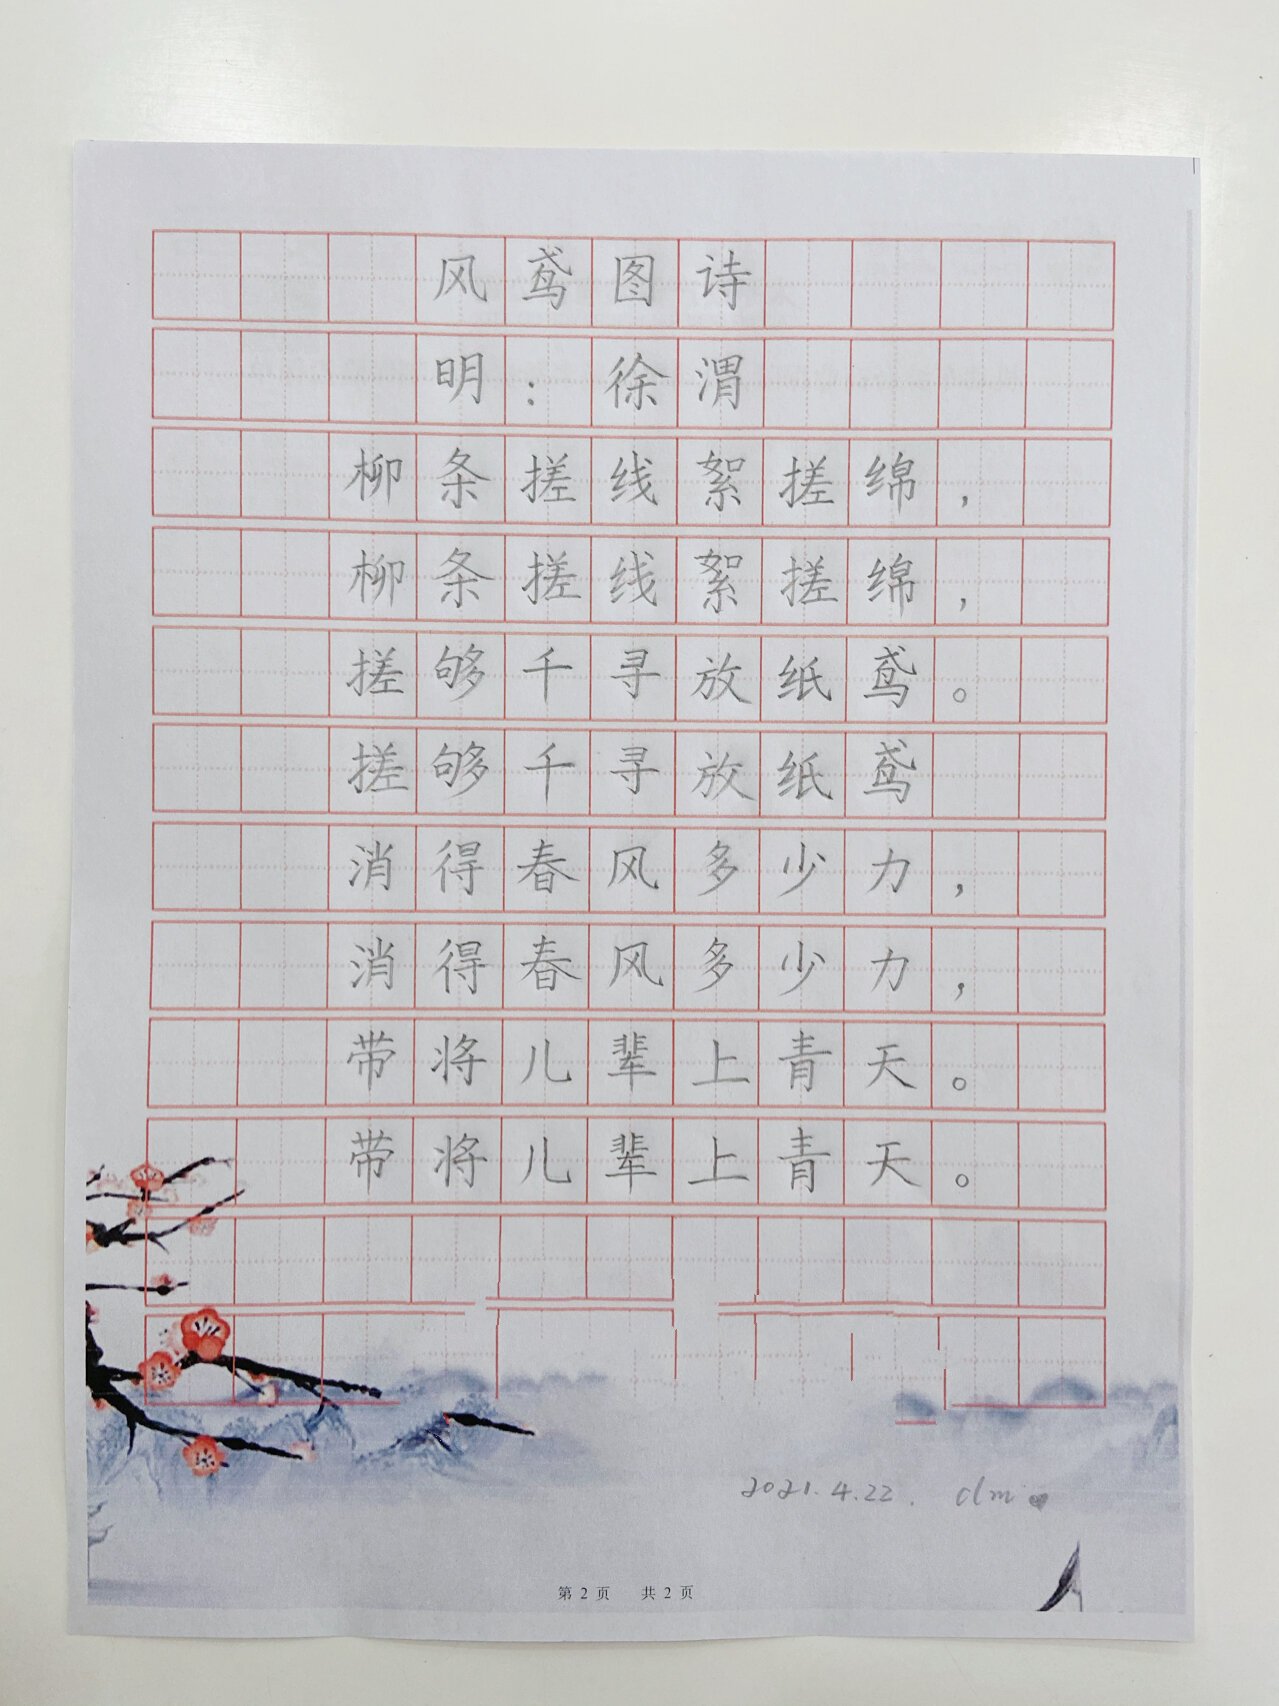 风鸢图诗
明：徐渭
柳条搓线絮搓绵，
柳条搓线絮搓绵，
搓够千寻放纸鸢。
搓够千寻放纸鸢
消得春风多少力，
消得春风多少力，
带将儿辈上青天。
带将儿辈上青天。
2021.4.22. dm
第 2 页 共 2 页